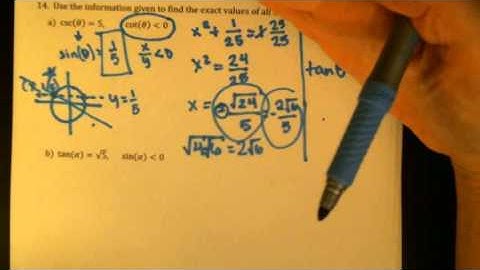 14. Use the information given to find the exact values of all
a) csc(θ) = 5, cot(θ) < 0
sin(θ) = 1/5 x/y < 0
y = 1/5
x² + 1/25 = 25/25
x² = 24/25
x = √24/5 = -2√6/5
√4√6 = 2√6
tan
b) tan(α) = √5, sin(α) < 0